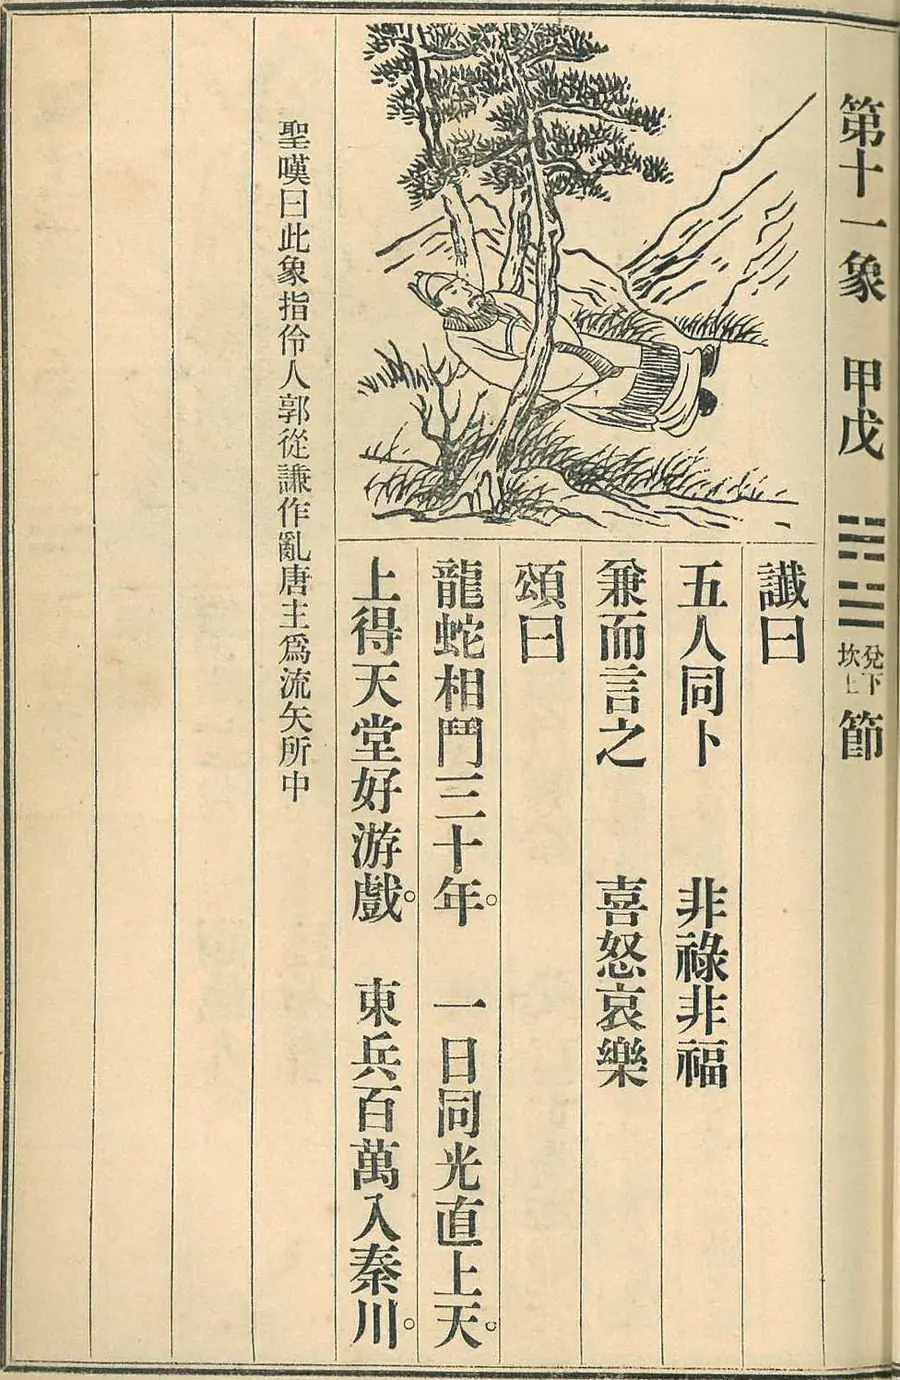 第十一象 甲戊 兌下坎上 節
讖曰
五人同卜 非祿非福
兼而言之 喜怒哀樂
頌曰
龍蛇相鬥三十年。 一日同光直上天。
上得天堂好游戲。 東兵百萬入秦川。
聖嘆曰此象指伶人郭從謙作亂唐主爲流矢所中